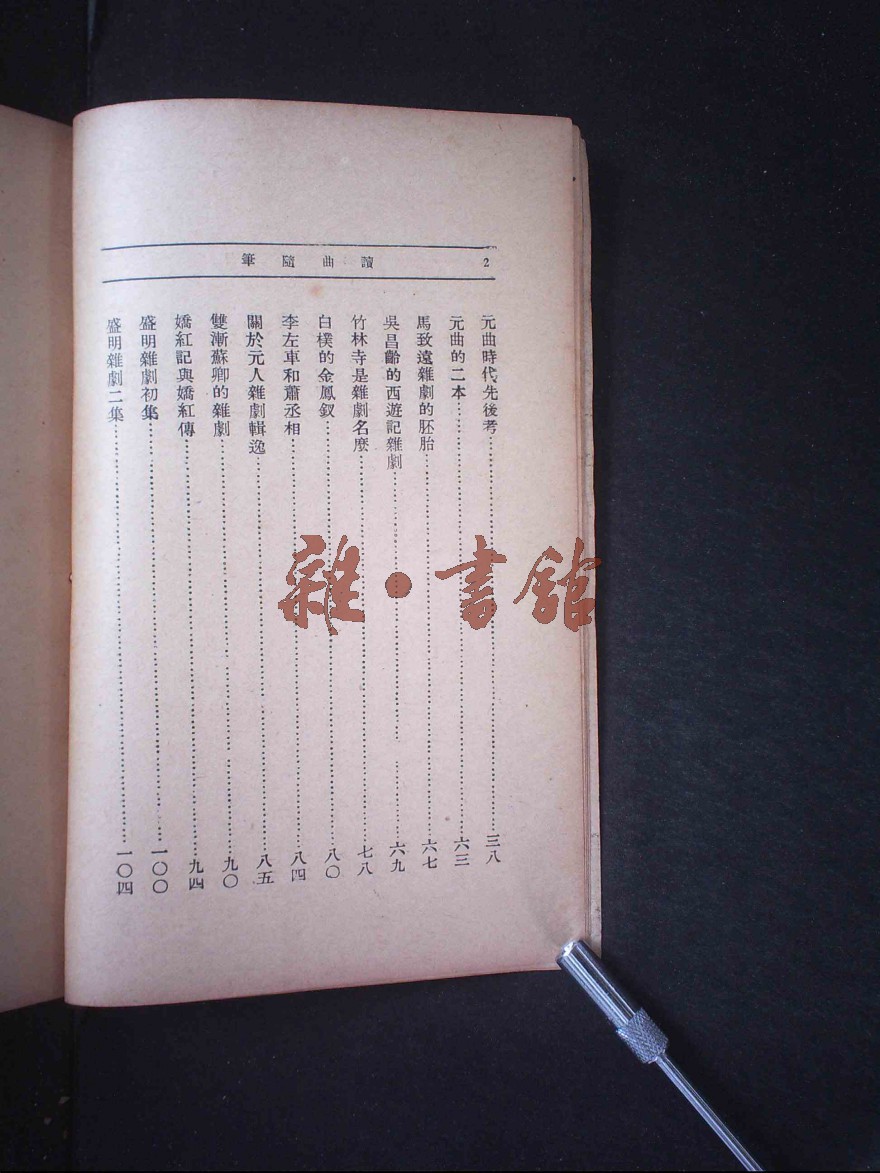 2 讀曲隨筆
元曲時代先後考……三八
元曲的二本……六三
馬致遠雜劇的胚胎……六七
吳昌齡的西遊記雜劇……六九
竹林寺是雜劇名麼……七八
白樸的金鳳釵……八〇
李左車和蕭丞相……八四
關於元人雜劇輯逸……八五
雙漸蘇卿的雜劇……九〇
嬌紅記與嬌紅傳……九四
盛明雜劇初集……一〇〇
盛明雜劇二集……一〇四
雜·書館